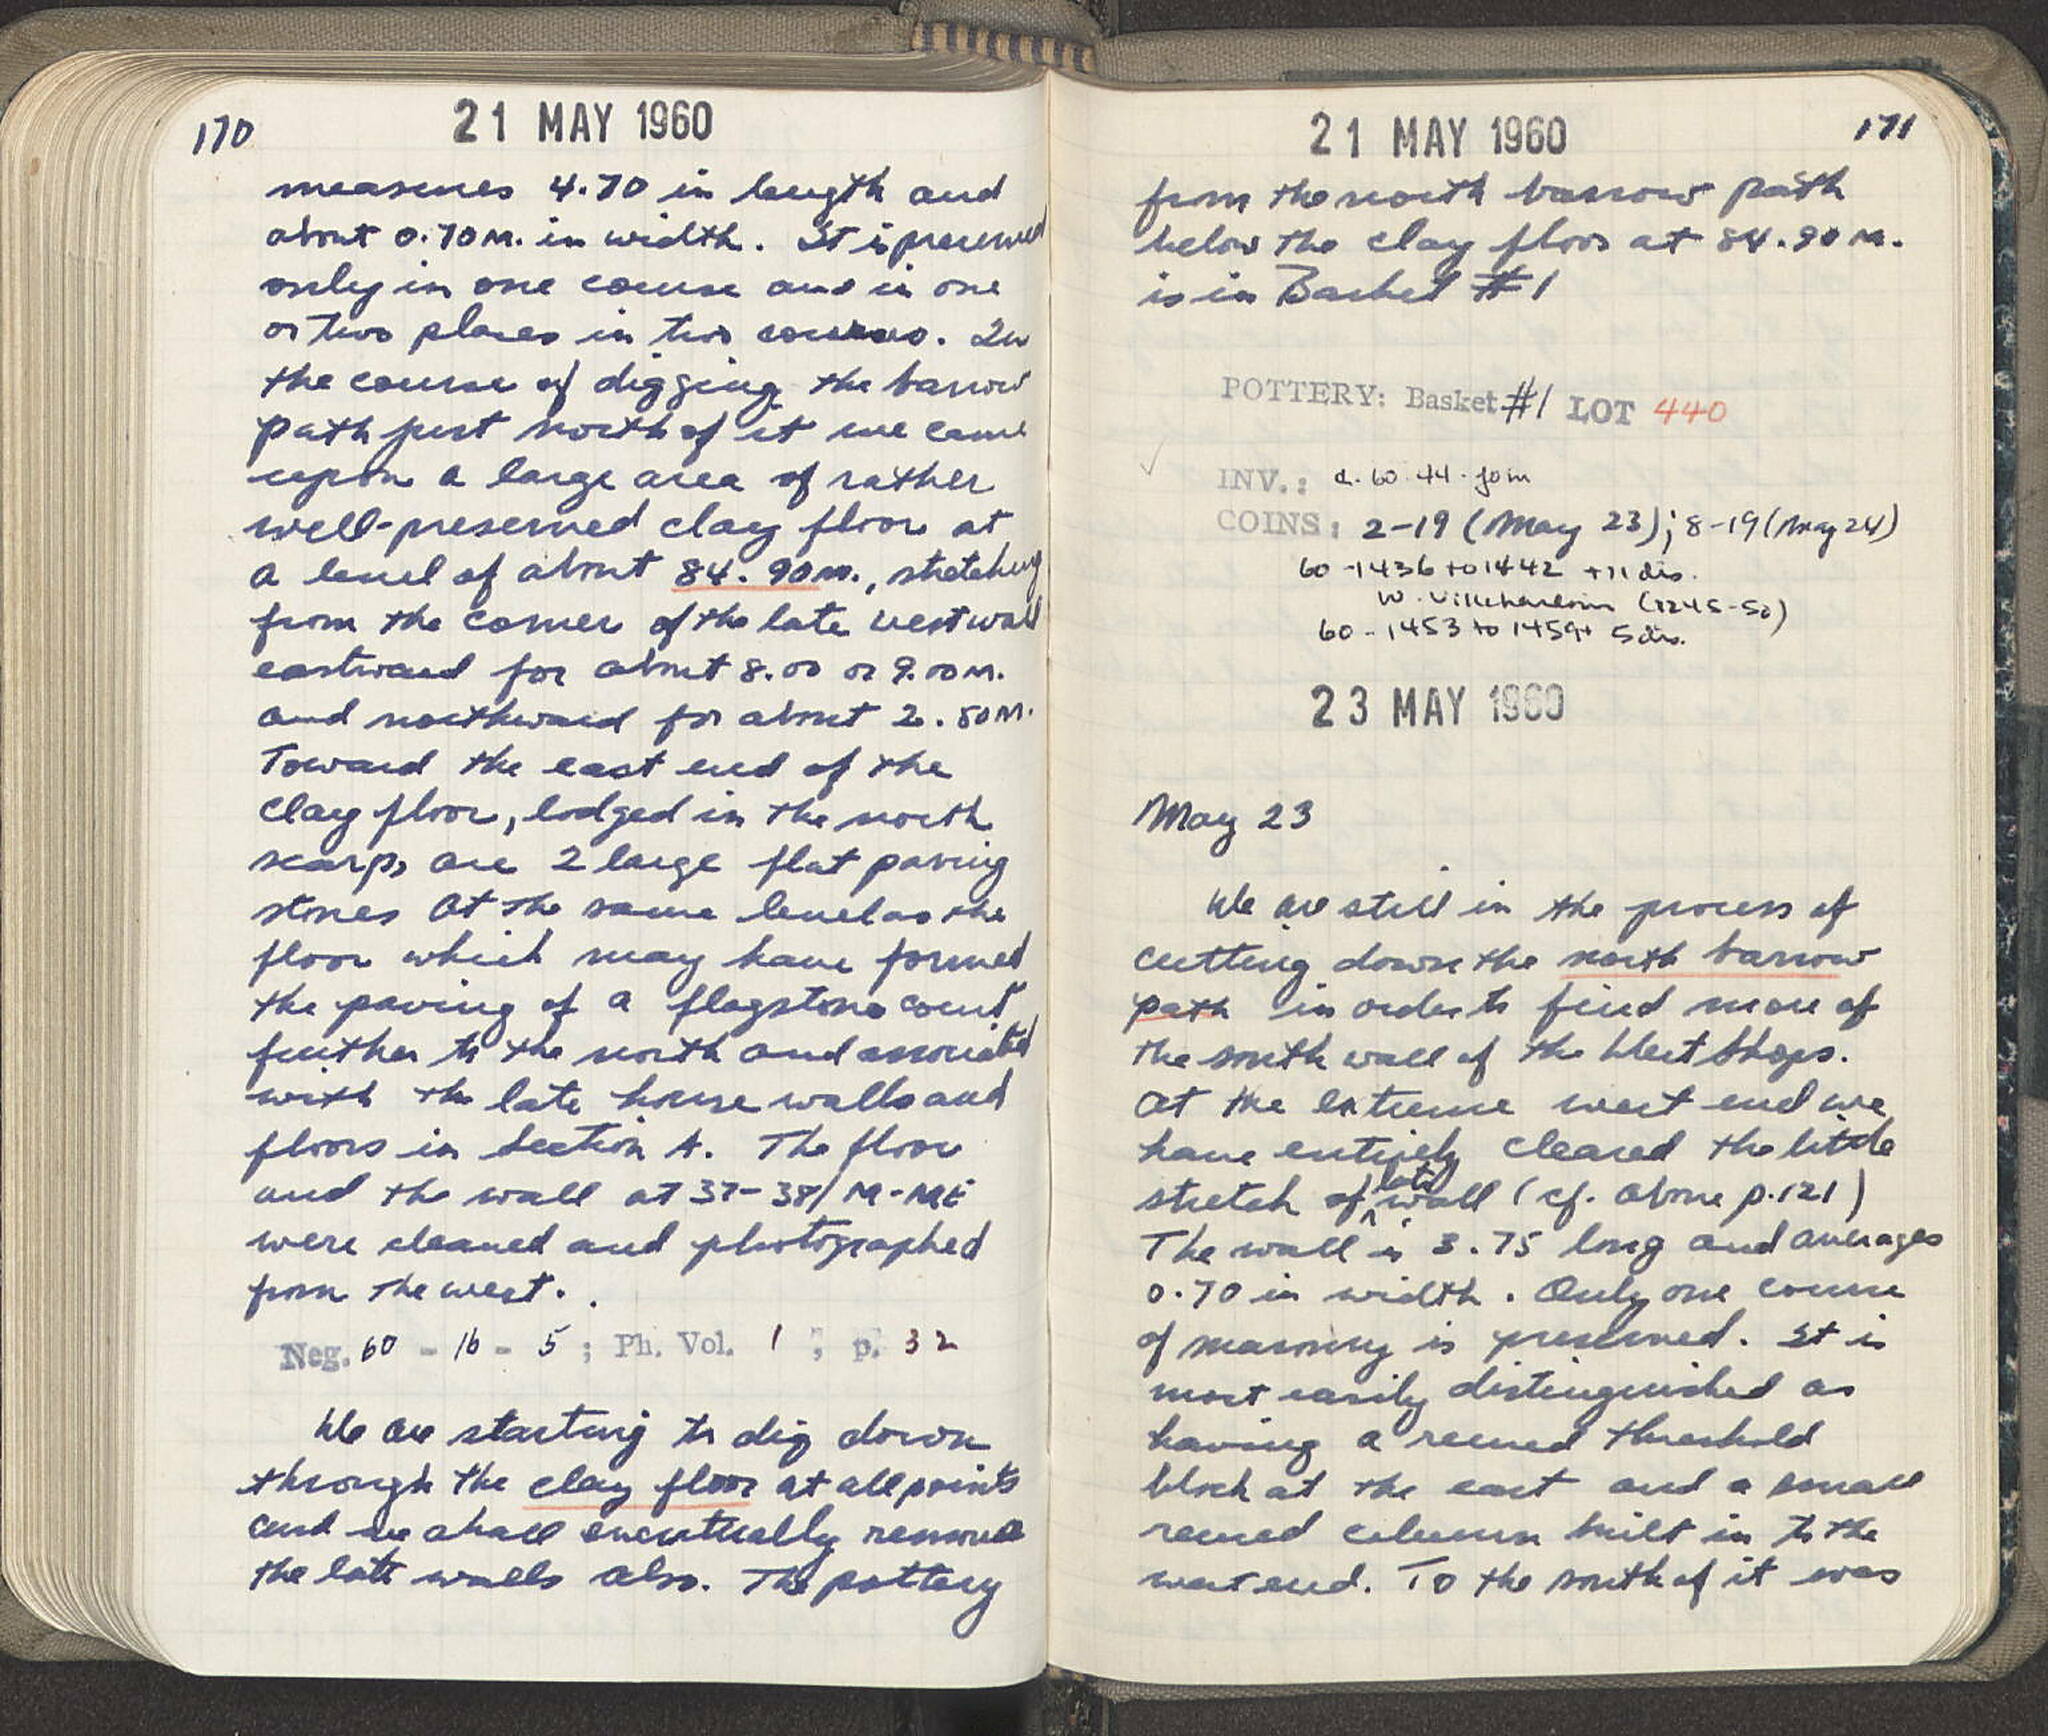 170
21 MAY 1960
measures 4.70 in length and
about 0.70 M. in width. It is preserved
only in one course and in one
or two places in two courses. In
the course of digging the barrow
path just north of it we came
upon a large area of rather
well-preserved clay floor at
a level of about 84.90 M., stretching
from the corner of the late west wall
eastward for about 8.00 or 9.00 M.
and northward for about 2.50 M.
Toward the east end of the
clay floor, lodged in the north
scarp, are 2 large flat paving
stones at the same level as the
floor which may have formed
the paving of a flagstone court
further to the north and associated
with the late house walls and
floors in Section A. The floor
and the wall at 37-38/M-ME
were cleaned and photographed
from the west.
Neg. 60 - 16 - 5 ; Ph. Vol. 1 ; p. 32
We are starting to dig down
through the clay floor at all points
and we shall eventually remove
the late walls also. The pottery
21 MAY 1960
171
from the north barrow path
below the clay floor at 84.90 M.
is in Basket #1
POTTERY: Basket #1 LOT 440
INV.: a. 60.44. join
COINS: 2-19 (May 23); 8-19 (May 24)
60-1436 to 1442 + 11 dis.
W. Villehardouin (1245-50)
60-1453 to 1459 + 5 dis.
23 MAY 1960
May 23
We are still in the process of
cutting down the north barrow
path in order to find more of
the south wall of the West Shops.
At the extreme west end we
have entirely cleared the little
stretch of late wall (cf. above p. 121)
The wall is 3.75 long and averages
0.70 in width. Only one course
of masonry is preserved. It is
most easily distinguished as
having a reused threshold
block at the east and a small
reused column built in to the
west end. To the south of it was